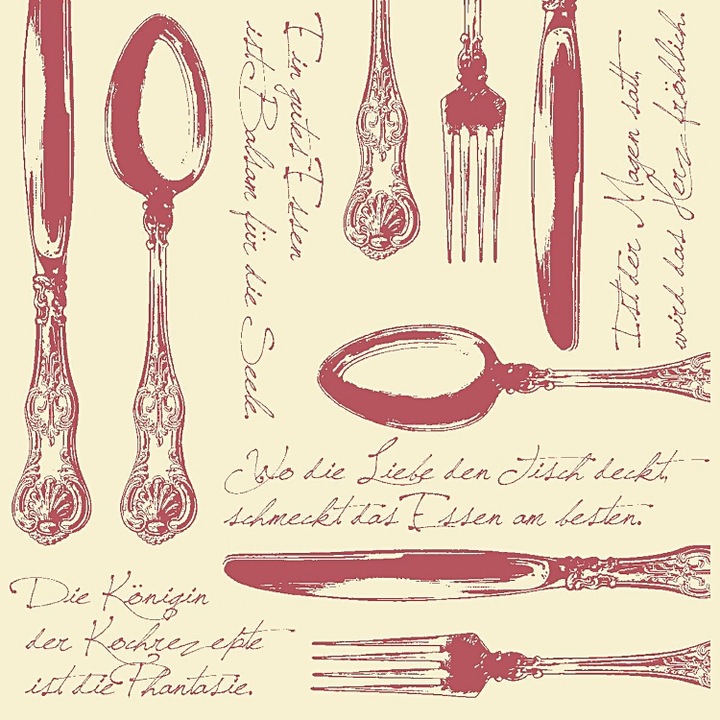 Ein gutes Essen
ist Balsam für die Seele.
Ist der Magen satt,
wird das Herz fröhlich.
Wo die Liebe den Tisch deckt,
schmeckt das Essen am besten.
Die Königin
der Kochrezepte
ist die Phantasie.